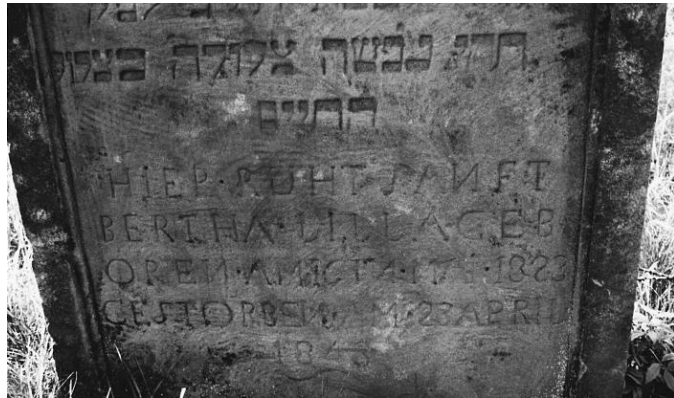 תהי נפשה צרורה בצרור
החיים
HIER·RUHT SANFT
BERTHA·LILLA GEB
OREN·AM MAI·1823
GESTORBEN 23 APRIL